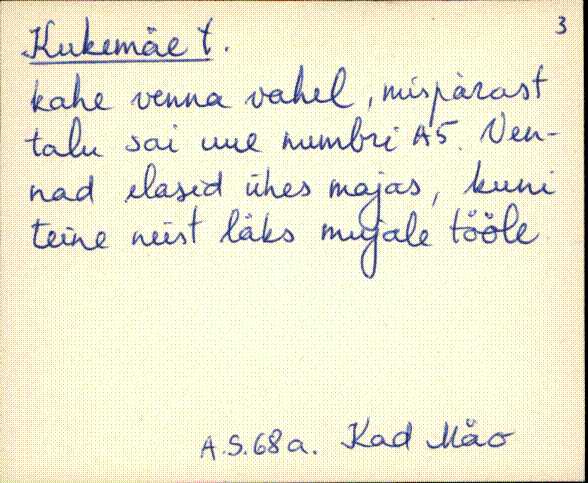 3
Kukemäe t.
kahe venna vahel, mispärast
talu sai uue numbri A5. Ven-
nad elasid ühes majas, kuni
teine neist läks mujale tööle
A.S.68a. Kad Mäo